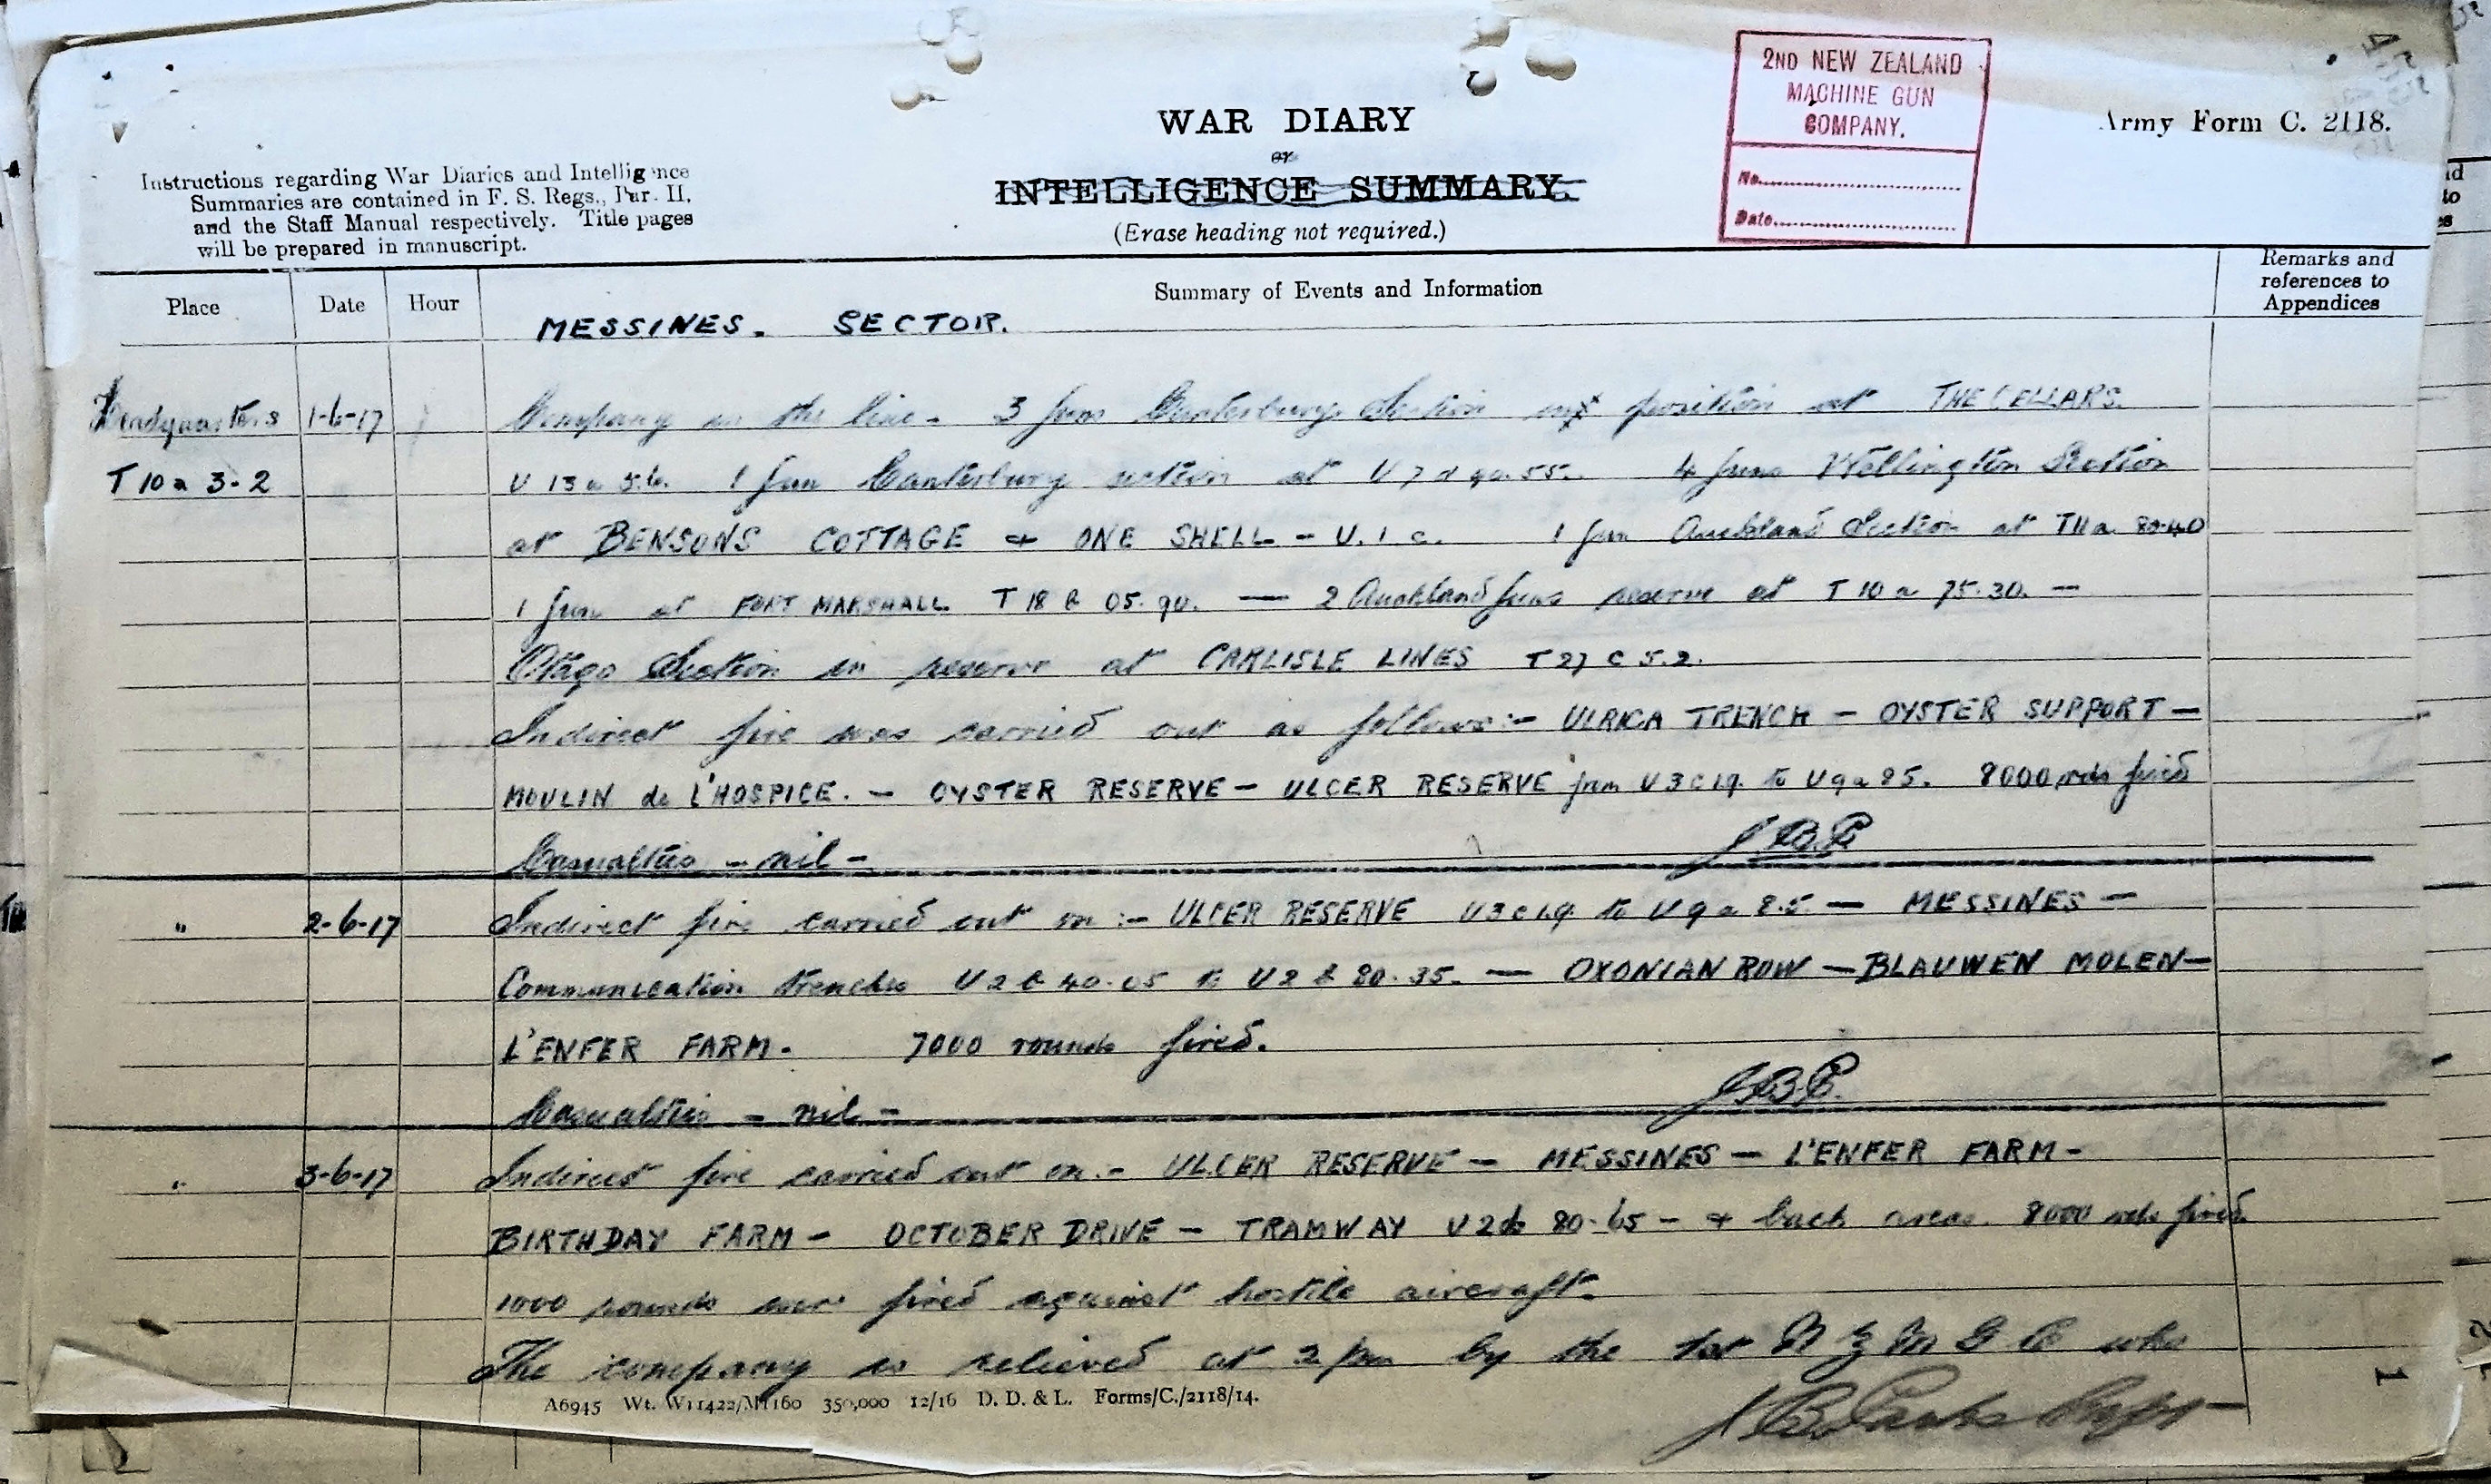 2ND NEW ZEALAND
MACHINE GUN
COMPANY.
No.
Date.
WAR DIARY
or
INTELLIGENCE SUMMARY.
(Erase heading not required.)
Army Form C. 2118.
Instructions regarding War Diaries and Intelligence
Summaries are contained in F. S. Regs., Par. II,
and the Staff Manual respectively. Title pages
will be prepared in manuscript.
Place Date Hour Summary of Events and Information Remarks and
references to
Appendices
MESSINES. SECTOR.
Headquarters 1-6-17 Company in the line - 3 guns Canterbury Section position at THE CELLARS.
T 10 a 3-2 U 13 a 5.6. 1 gun Canterbury section at U 7 d 90.55. 4 guns Wellington Section
at BENSONS COTTAGE & ONE SHELL - U.1 c. 1 gun Auckland Section at T11 a 80.40
1 gun at FORT MARSHALL T 18 b 05.90. — 2 Auckland guns reserve at T 10 a 75.30. —
Otago Section in reserve at CARLISLE LINES T 27 c 5.2.
Indirect fire was carried out as follows:- ULRICA TRENCH - OYSTER SUPPORT -
MOULIN de L'HOSPICE. - OYSTER RESERVE - ULCER RESERVE from U 3 c 1.9. to U 9 a 85. 8000 rds fired
Casualties - nil - J.B.P.
" 2-6-17 Indirect fire carried out on :- ULCER RESERVE U 3 c 1.9. to U 9 a 8.5. — MESSINES -
Communication trenches U 2 b 40.05 to U 2 b 80.35. — OXONIAN ROW - BLAUWEN MOLEN -
L'ENFER FARM. 7000 rounds fired.
Casualties - nil - J.B.P.
" 3-6-17 Indirect fire carried out on :- ULCER RESERVE - MESSINES - L'ENFER FARM -
BIRTHDAY FARM - OCTOBER DRIVE - TRAMWAY U 2 b 80.65 - & back areas. 8000 rds fired.
1000 rounds were fired against hostile aircraft.
The company is relieved at 2 pm by the 1st N Z M G C who
A6945 Wt. W11422/M1160 350,000 12/16 D. D. & L. Forms/C./2118/14.